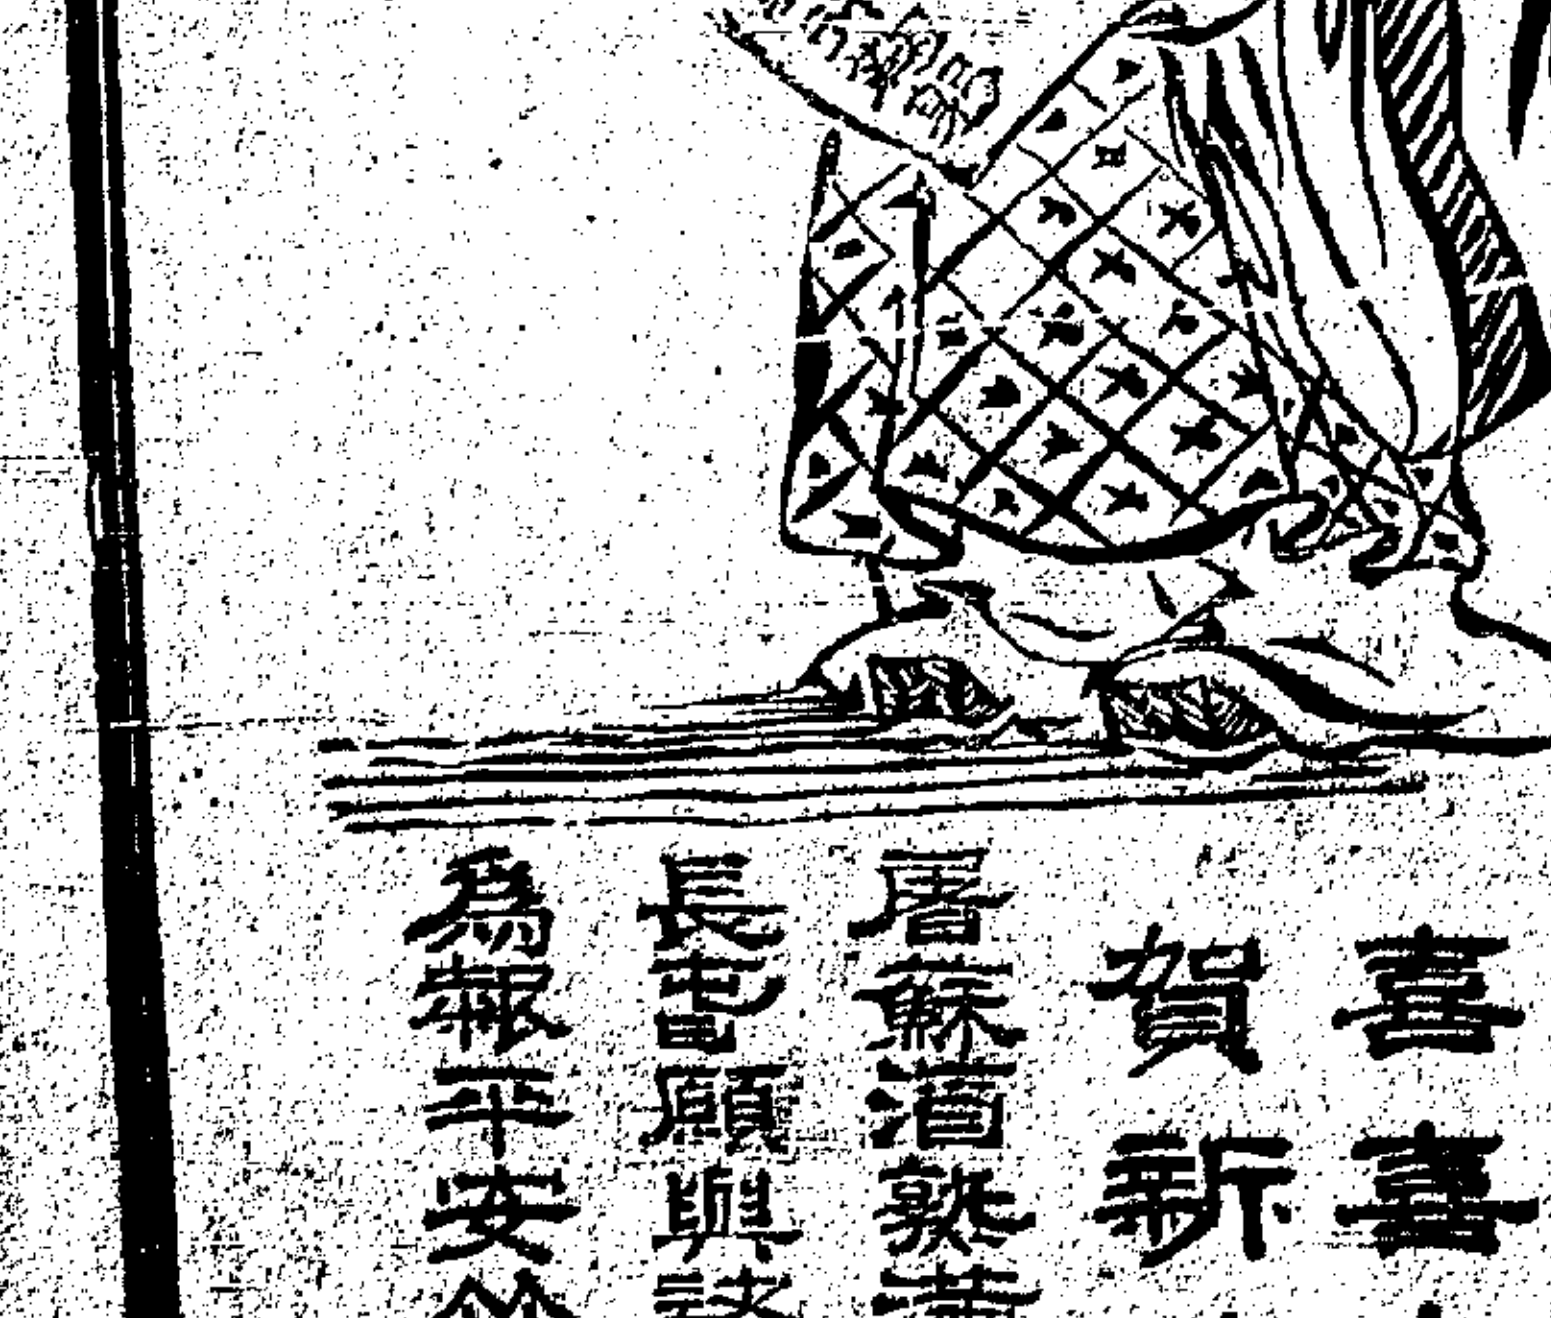 喜喜
賀新
屠蘇酒熟滿
長旾願與
爲報平安